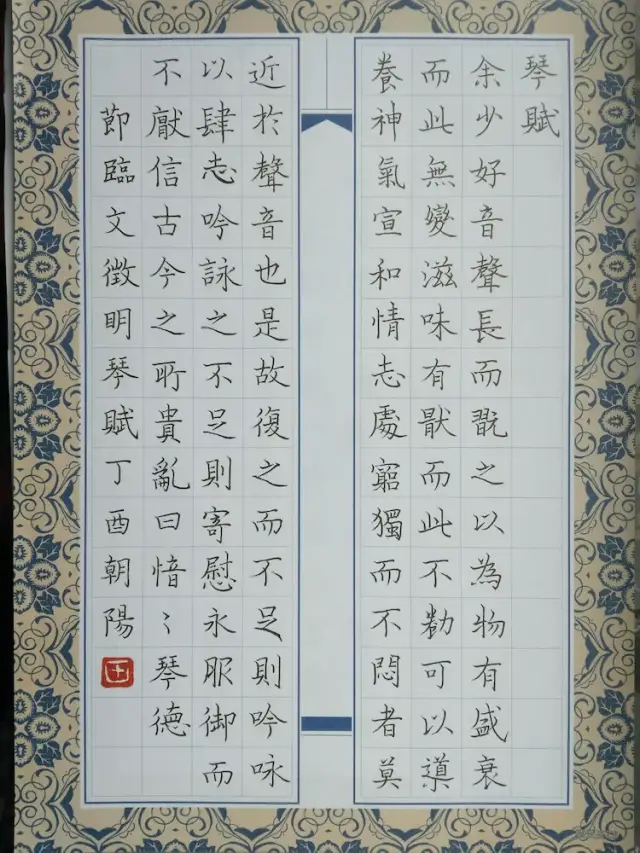 琴賦
余少好音聲長而翫之以為物有盛衰
而此無變滋味有猒而此不勌可以導
養神氣宣和情志處窮獨而不悶者莫
近於聲音也是故復之而不足則吟咏
以肆志吟詠之不足則寄慰永服御而
不厭信古今之所貴亂曰愔〻琴德
節臨文徵明琴賦丁酉朝陽